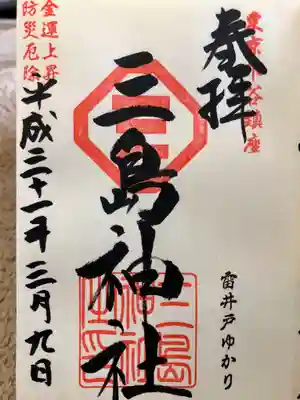 東京下谷鎮座
奉拝
雷井戸ゆかり
三島神社
金運上昇
防災厄除
平成三十一年三月九日